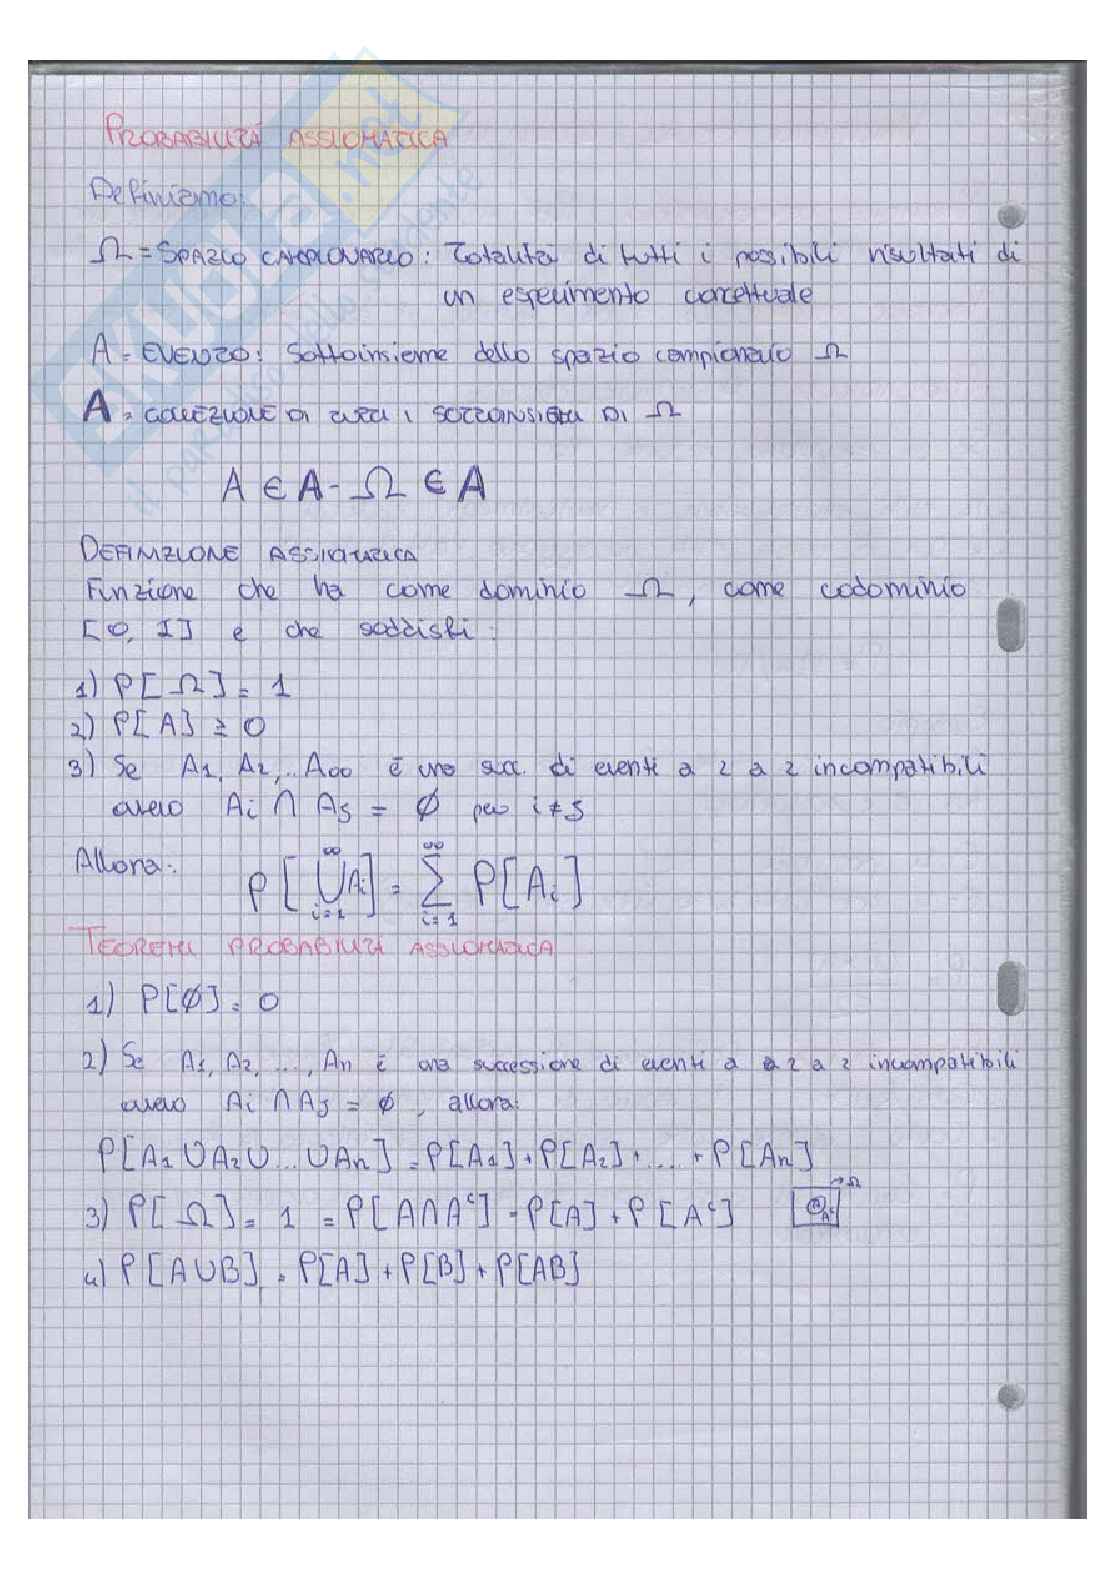 PROBABILITÁ ASSIOMATICA
Definiamo:
Ω = SPAZIO CAMPIONARIO: Totalità di tutti i possibili risultati di
un esperimento concettuale
A = EVENTO: Sottoinsieme dello spazio campionario Ω
A = COLLEZIONE DI TUTTI I SOTTOINSIEMI DI Ω
A ∈ A - Ω ∈ A
DEFINIZIONE ASSIOMATICA
Funzione che ha come dominio Ω, come codominio
[0, 1] e che soddisfi:
1) P[Ω] = 1
2) P[A] ≥ 0
3) Se A1, A2, ... A∞ è una succ. di eventi a 2 a 2 incompatibili
ovvero Ai ∩ AJ = ∅ per i ≠ J
Allora: P[⋃_{i=1}^{∞} Ai] = ∑_{i=1}^{∞} P[Ai]
TEOREMI PROBABILITÀ ASSIOMATICA
1) P[∅] = 0
2) Se A1, A2, ..., An è una successione di eventi a 2 a 2 incompatibili
ovvero Ai ∩ AJ = ∅, allora:
P[A1 ∪ A2 ∪ ... ∪ An] = P[A1] + P[A2] + ... + P[An]
3) P[Ω] = 1 = P[A ∩ Aᶜ] = P[A] + P[Aᶜ] → Ω A Aᶜ
4) P[A ∪ B] = P[A] + P[B] + P[AB]
skuola.net
il paradiso dello studente